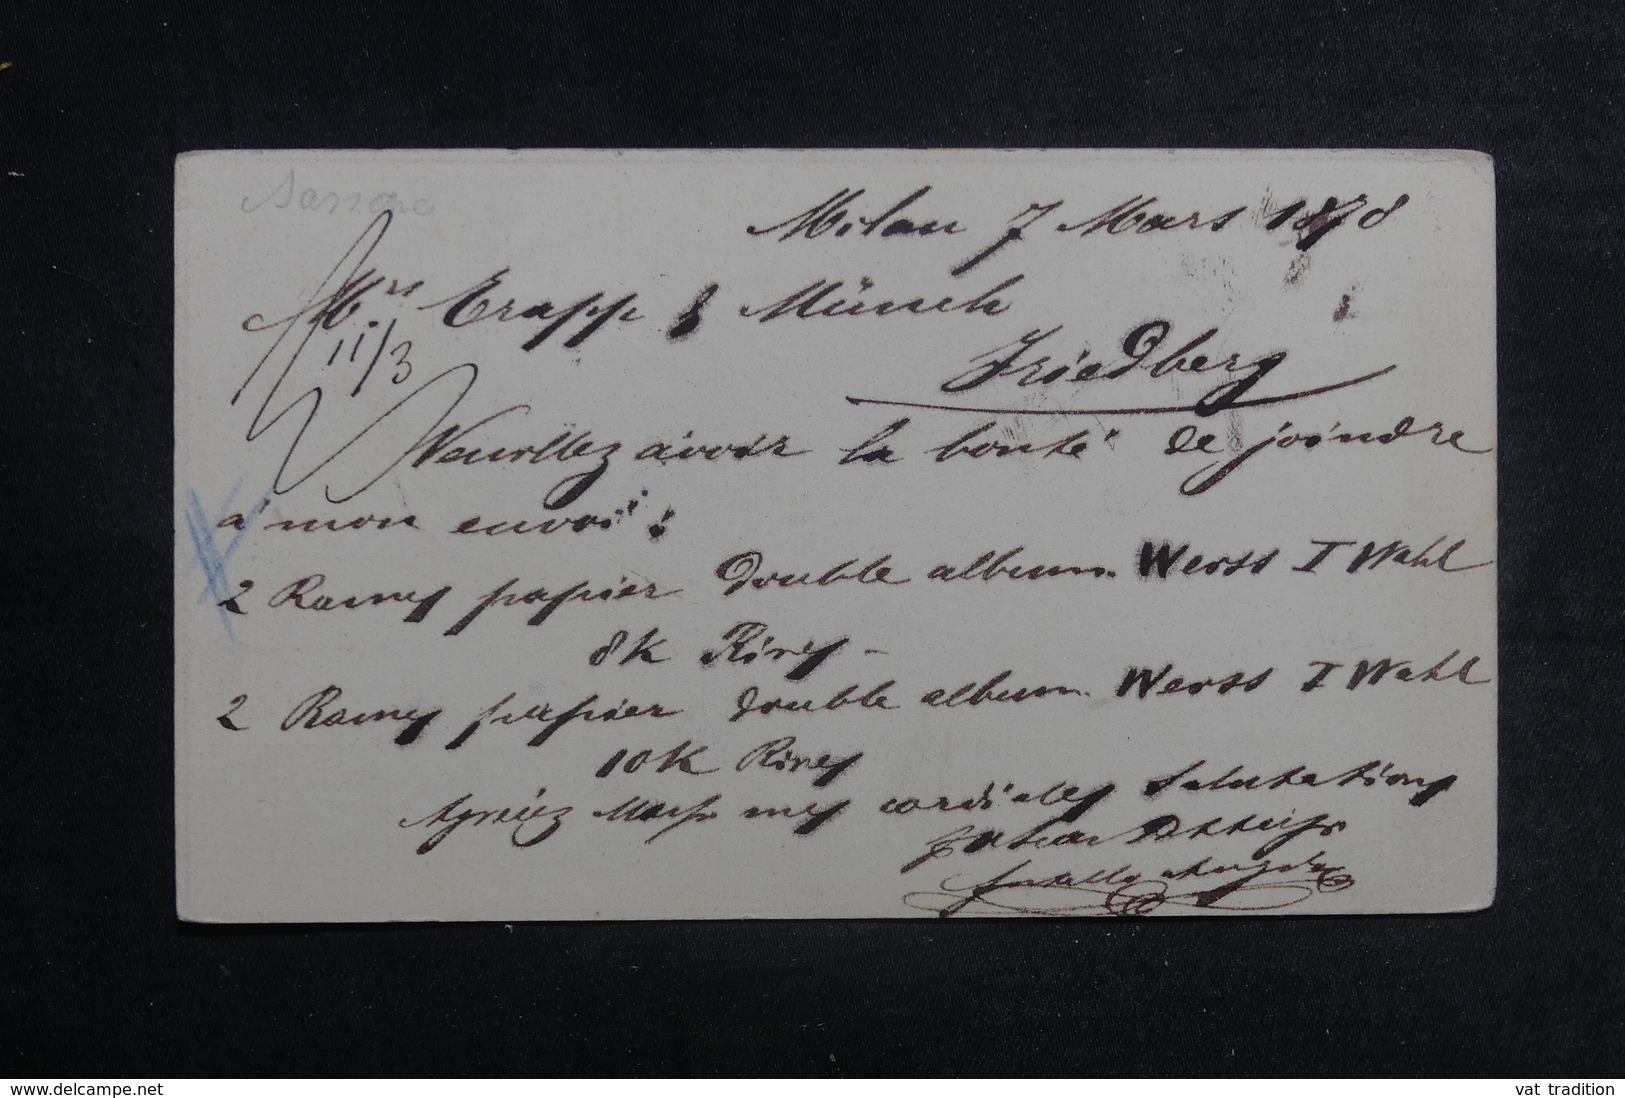 Milan 7 Mars 1878
Mrs Trapp & Münch
11/3
Friedberg
Veuillez avoir la bonté de joindre
à mon envoi:
2 Rames papier double album Weiss I Wahl
8K Rives -
2 Rames papier double album Weiss I Wahl
10K Rives
Agréez Messrs mes cordiales Salutations
delcampe.net
vat tradition